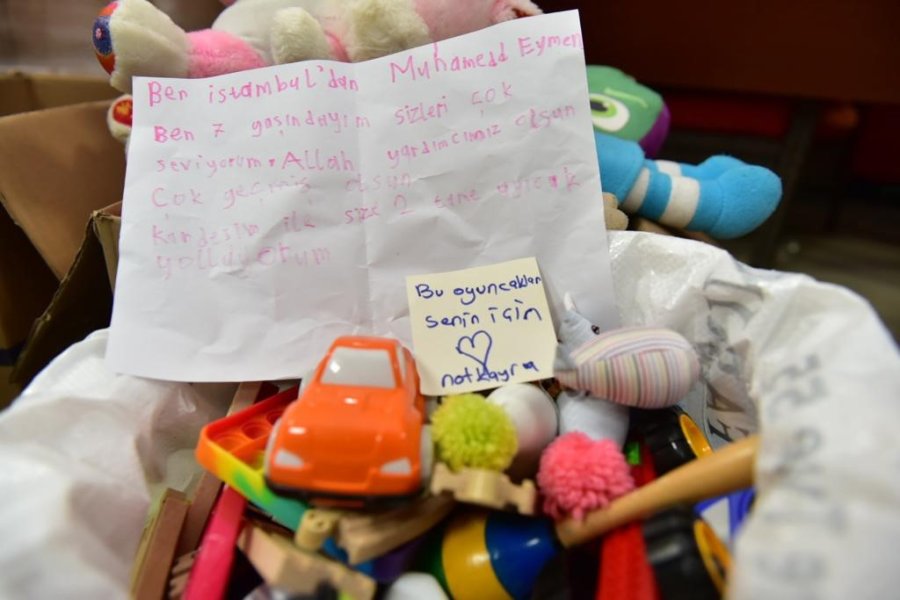 Ben istanbul'dan Muhamedd Eymen
Ben 7 yaşındayım sizleri çok
seviyorum, Allah yardımcımız olsun
Çok geçmiş olsun
Kardeşim ile size 2 tane oyuncak
yolluyorum
Bu oyuncaklar
senin için
notkayra